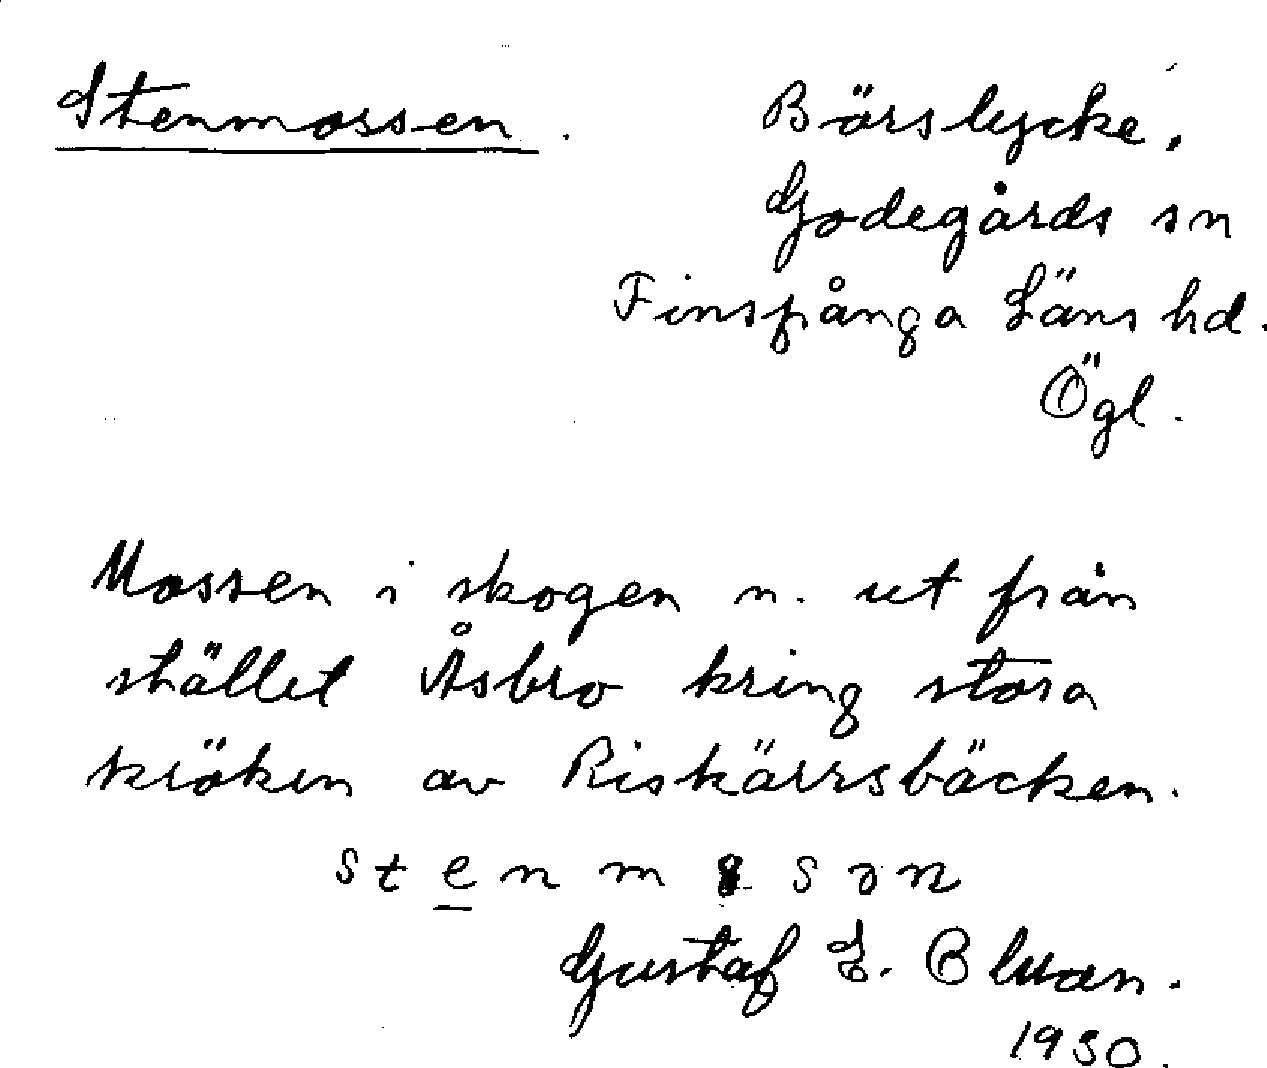 Stenmossen.
Börslycke,
Godegårds sn
Finspånga Läns hd.
Ögl.
Mossen i skogen n. ut från
stället Åsbro kring stora
kröken av Riskärrsbäcken.
Gustaf
1930.